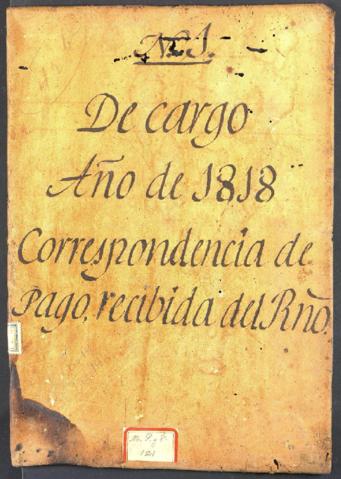 N. 1.
De cargo
Año de 1818
Correspondencia de
Pago, recibida del Rño.
121